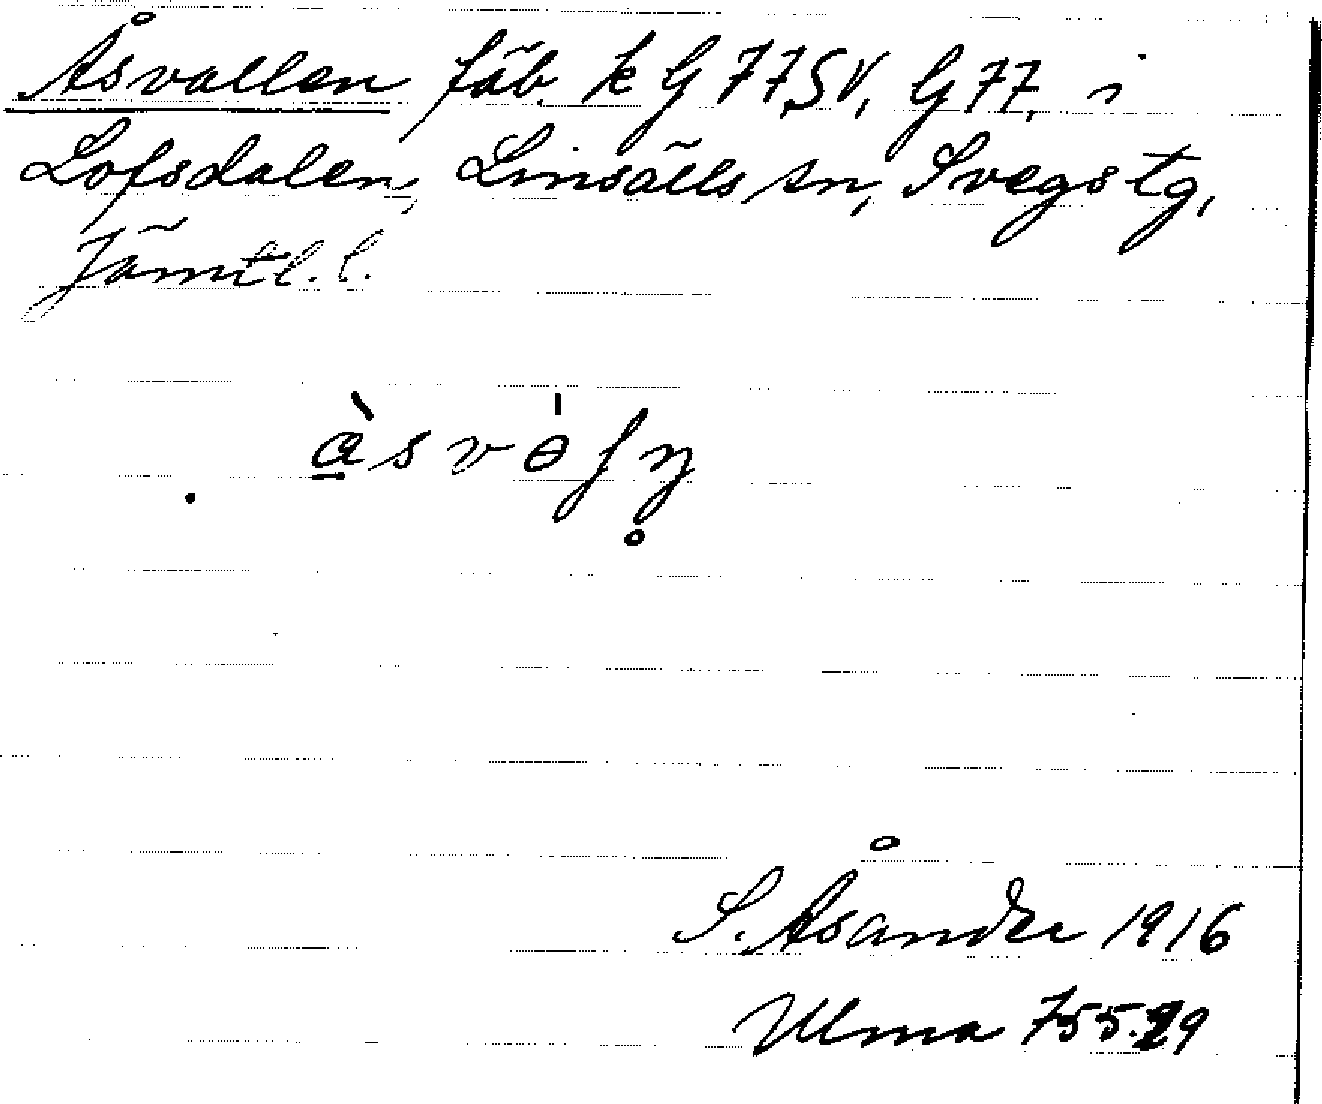 Åsvallen fäb. k G 77,SV, G 77, i
Lofsdalen, Linsälls sn, Svegs tg,
Jämtl. l.
S. Åsander 1916
Ulma 755:29